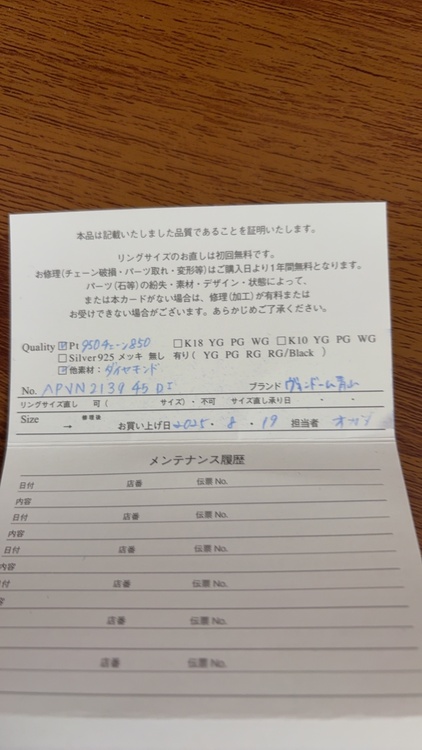 本品は記載いたしました品質であることを証明いたします。
リングサイズのお直しは初回無料です。
お修理(チェーン破損・パーツ取れ・変形等)はご購入日より1年間無料となります。
パーツ(石等)の紛失・素材・デザイン・状態によって、
または本カードがない場合は、修理(加工)が有料または
お受けできない場合がございます。あらかじめご了承ください。
Quality ☑Pt 950チェーン850 □K18 YG PG WG □K10 YG PG WG
□Silver925 メッキ 無し 有り( YG PG RG RG/Black )
☑他素材: ダイヤモンド
No. APVN2139 45 DI ブランド ヴァンドーム青山
リングサイズ直し 可( サイズ)・不可 サイズ直し承り日 ・ ・
Size → 修理後 お買い上げ日 2025・8・19 担当者
メンテナンス履歴
日付 店番 伝票No.
内容
日付 店番 伝票No.
内容
日付 店番 伝票No.
内容
付 店番 伝票No.
店番 伝票No.
店番 伝票No.